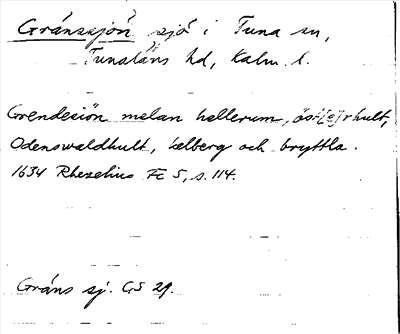 Gränssjön sjö i Tuna sn,
Tunaläns hd, Kalm. l.
Grendesiön melan hellerum, öst[e]rhult,
Odenswaldhult, helberg och bryttla.
1634 Rhezelius Fc 5, s. 114.
Gräns sj. GS 29.